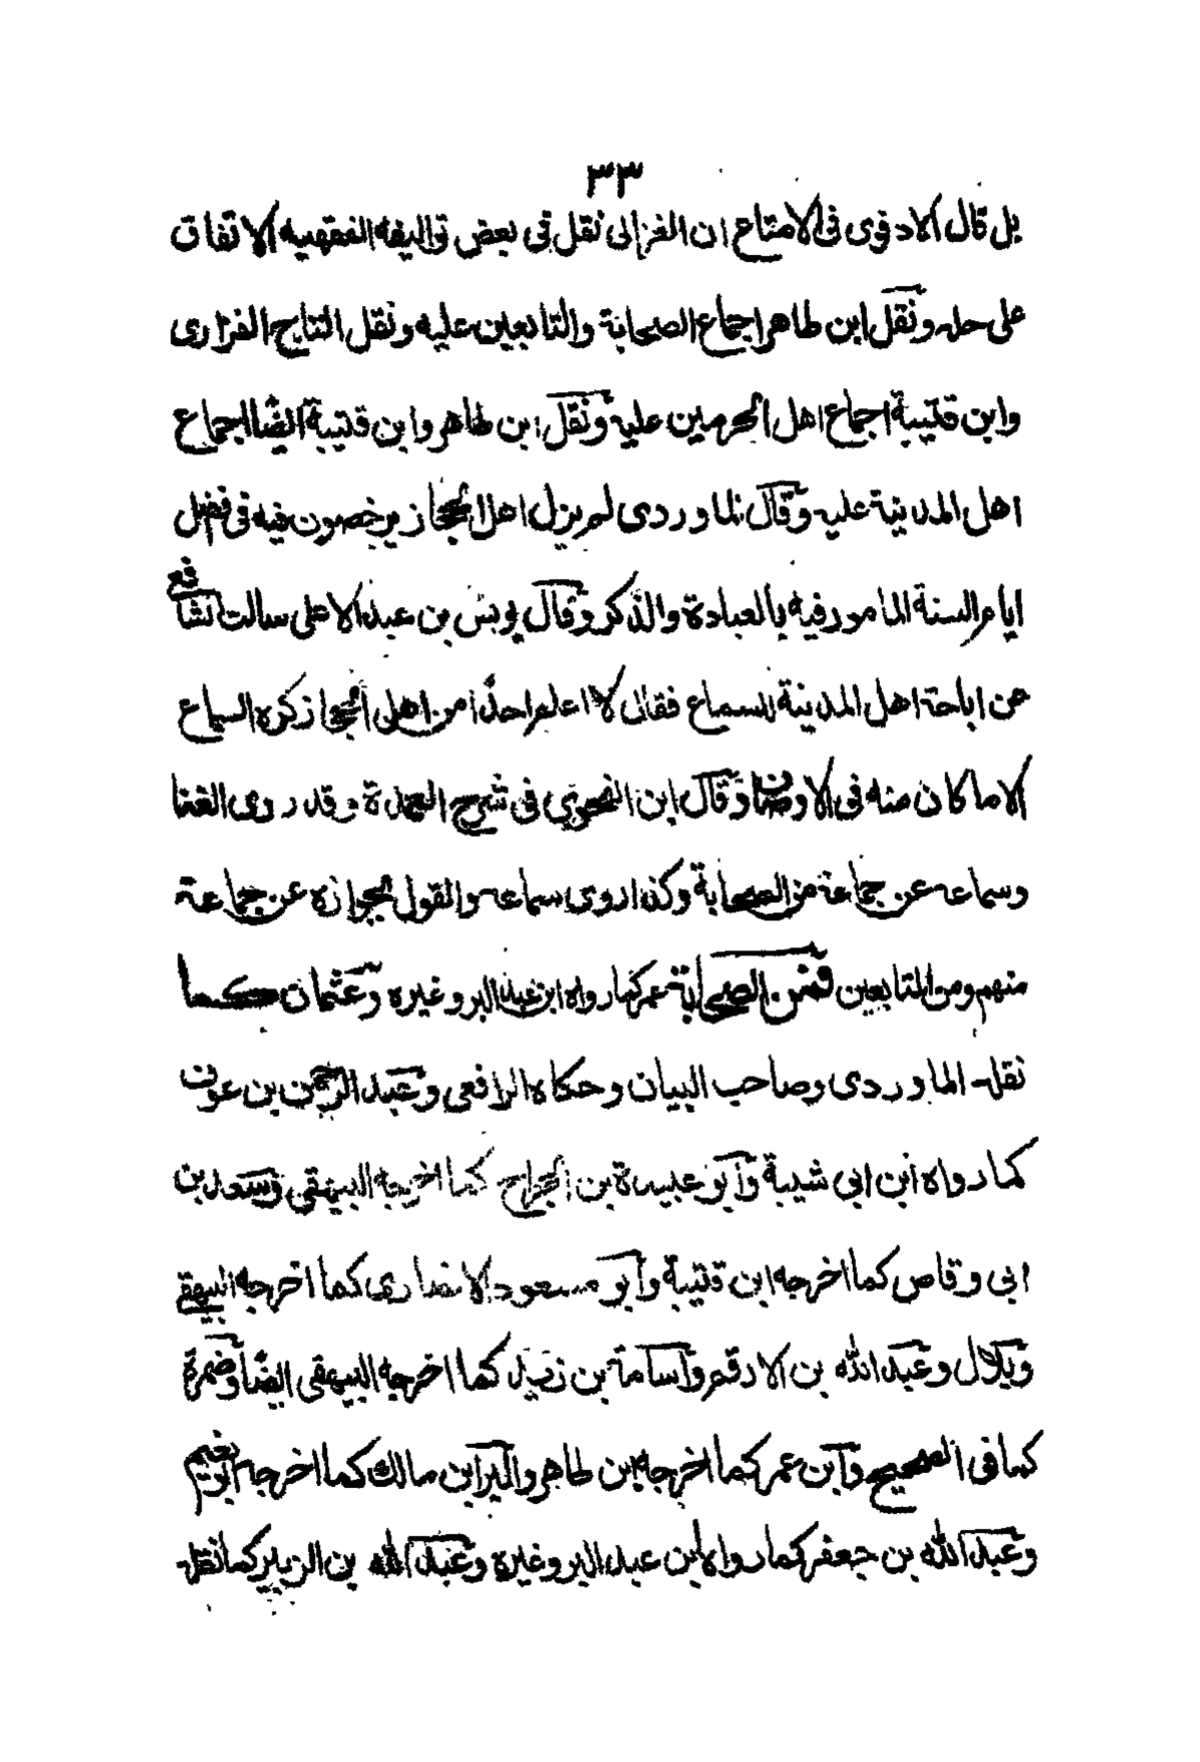 ٣٣
بل قال الادفوى فى الامتاع ان الغزالى نقل فى بعض تواليفه الفقهيه الاتفاق
على حله ونقل ابن طاهر اجماع الصحابة والتابعين عليه ونقل التاج الفزارى
وابن قتيبة اجماع اهل الحرمين عليه ونقل ابن طاهر وابن قتيبة ايضًا اجماع
اهل المدينة عليه وقال الماوردى لم يزل اهل الحجاز يرخصون فيه فى فضل
ايام السنة المامور فيه بالعبادة والذكر وقال يونس بن عبد الاعلى سالت الشافعى
عن اباحة اهل المدينة للسماع فقال لا اعلم احدًا من اهل الحجاز كره السماع
الا ما كان منه فى الاوصاف وقال ابن النحوى فى شرح العمدة وقد روى الغنا
وسماعه عن جماعة من الصحابة وكذا روى سماعه والقول بجوازه عن جماعة
منهم ومن التابعين فمن الصحابة عمر كما رواه ابن عبد البر وغيره وعثمان كما
نقله الماوردى وصاحب البيان وحكاه الرافعى وعبد الرحمن بن عوف
كما رواه ابن ابى شيبة وابو عبيدة بن الجراح كما اخرجه البيهقى وسعد بن
ابى وقاص كما اخرجه ابن قتيبة وابو مسعود الانصارى كما اخرجه البيهقى
وبلال وعبد الله بن الارقم واسامة بن زيد كما اخرجه البيهقى ايضًا وحمزة
كما فى الصحيح وابن عمر كما اخرجه ابن طاهر والبرا بن مالك كما اخرجه ابو نعيم
وعبد الله بن جعفر كما رواه ابن عبد البر وغيره وعبد الله بن الزبير كما نقله